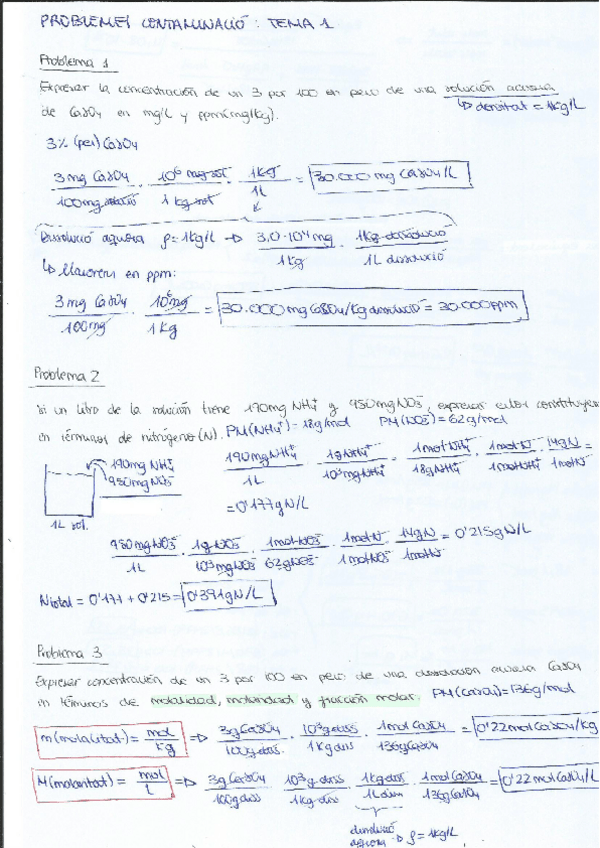 PROBLEMES CONTAMINACIÓ: TEMA 1
Problema 1
Expresar la concentración de un 3 por 100 en peso de una solución acuosa
↳ densitat = 1kg/L
de CaSO4 en mg/L y ppm (mg/kg).
3% (pes) CaSO4
3mg CaSO4 / 100mg solució · 10^6 mg sol / 1 kg sol · 1kg / 1L = 30.000 mg CaSO4/L
Dissolució aquosa ρ=1kg/L → 3,0·10^4 mg / 1kg · 1kg dissolució / 1L dissolució
↳ Llavorens en ppm:
3 mg CaSO4 / 100mg · 10^6 mg / 1kg = 30.000mg CaSO4/kg dissolució = 30.000ppm
Problema 2
Si un litro de la solución tiene 190mg NH4+ y 950mg NO3-, expresar estos constituyen
en términos de nitrógeno (N). PM(NH4+)=18g/mol PM(NO3-)=62g/mol
190mg NH4+
950mg NO3-
1L sol.
190mg NH4+ / 1L · 1g NH4+ / 10^3 mg NH4+ · 1mol NH4+ / 18g NH4+ · 1mol N / 1mol NH4+ · 14g N / 1mol N =
=0'177g N/L
950mg NO3- / 1L · 1g NO3- / 10^3 mg NO3- · 1mol NO3- / 62g NO3- · 1mol N / 1mol NO3- · 14g N / 1mol N = 0'215g N/L
N total = 0'177 + 0'215 = 0'391g N/L
Problema 3
Expresar concentración de un 3 por 100 en peso de una dissolución acuosa CaSO4
en términos de molalidad, molaridad y fracción molar. PM(CaSO4)=136g/mol
m(molalitat)= mol / kg ⇒ 3g CaSO4 / 100g diss. · 10^3 g diss / 1kg diss · 1mol CaSO4 / 136g CaSO4 = 0'22mol CaSO4/kg
M(molaritat)= mol / L ⇒ 3g CaSO4 / 100g diss · 10^3 g diss / 1kg diss · 1kg diss / 1L diss · 1mol CaSO4 / 136g CaSO4 = 0'22 mol CaSO4/L
dissolució
aquosa → ρ=1kg/L